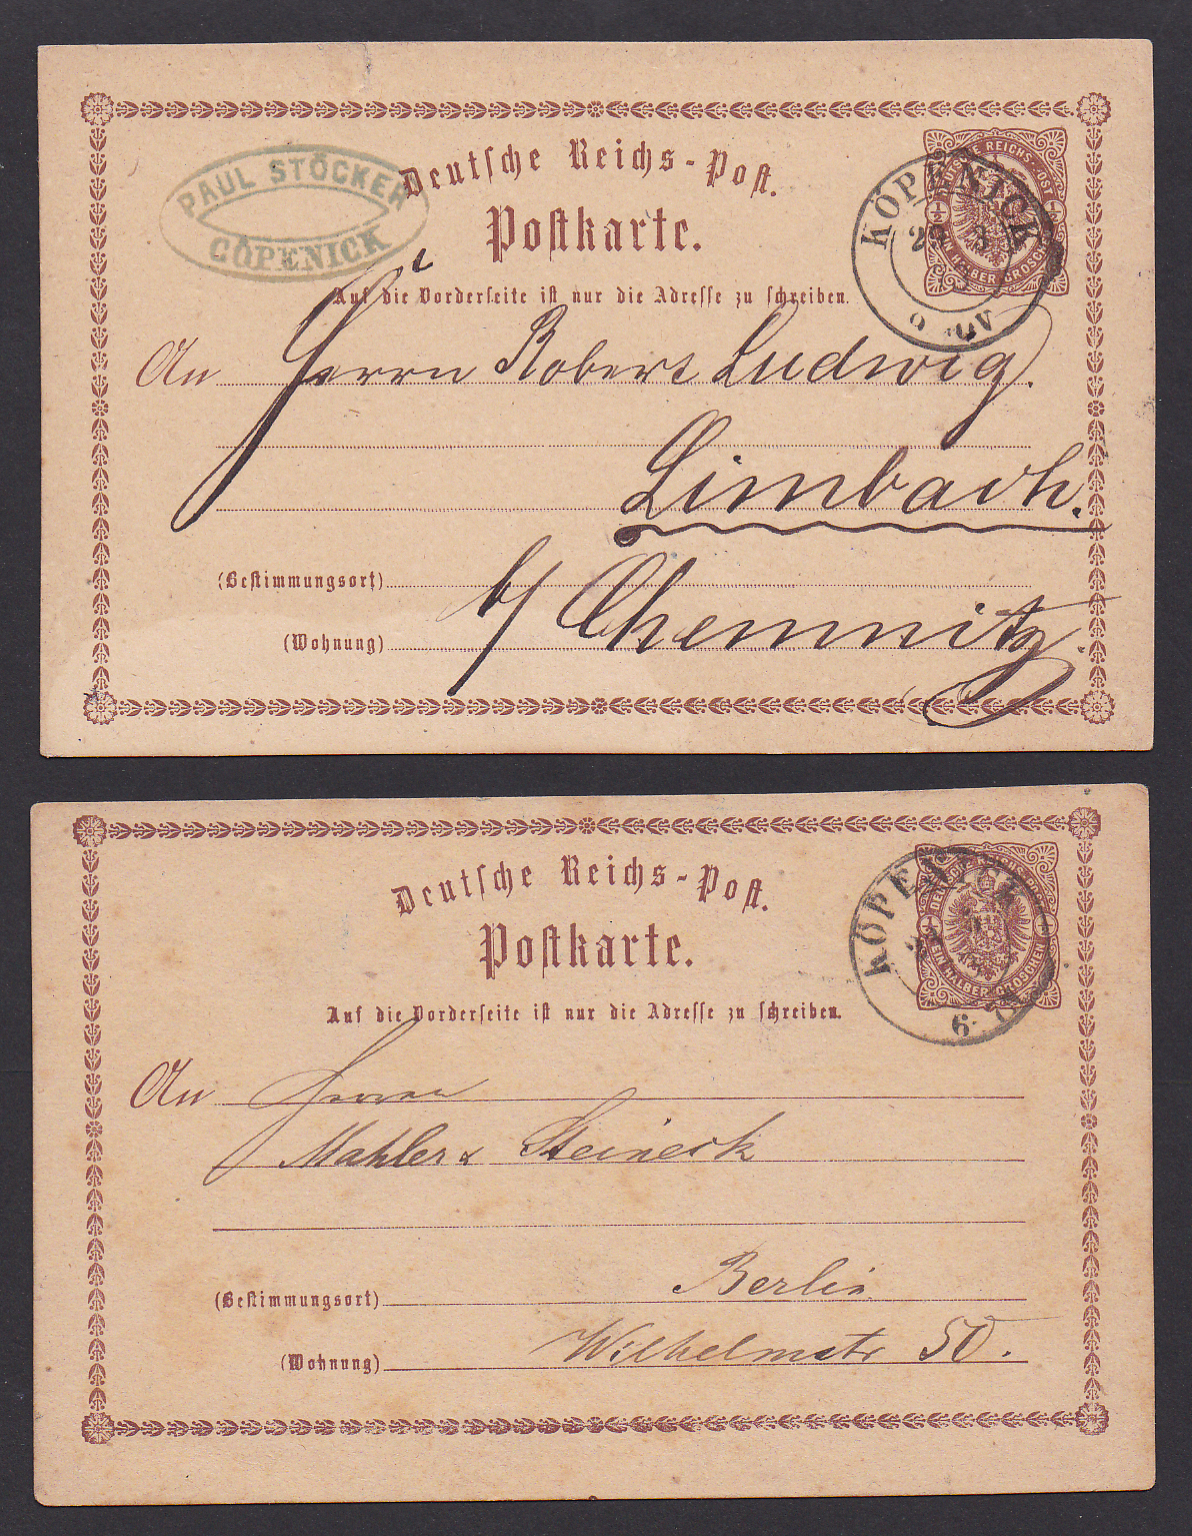 PAUL STÖCKER
CÖPENICK
Deutsche Reichs-Post.
Postkarte.
DEUTSCHE REICHS-POST
½ ½
HALBER GROSCHEN
KÖPENICK
Auf die Vorderseite ist nur die Adresse zu schreiben.
An Herrn Robert Ludwig.
Limbach.
(Bestimmungsort)
b/ Chemnitz.
(Wohnung)
Deutsche Reichs-Post.
Postkarte.
EIN HALBER GROSCHEN
KÖPENICK
Auf die Vorderseite ist nur die Adresse zu schreiben.
An Herren
Mahler & Steineck
Berlin
(Bestimmungsort)
Wilhelmstr 50.
(Wohnung)